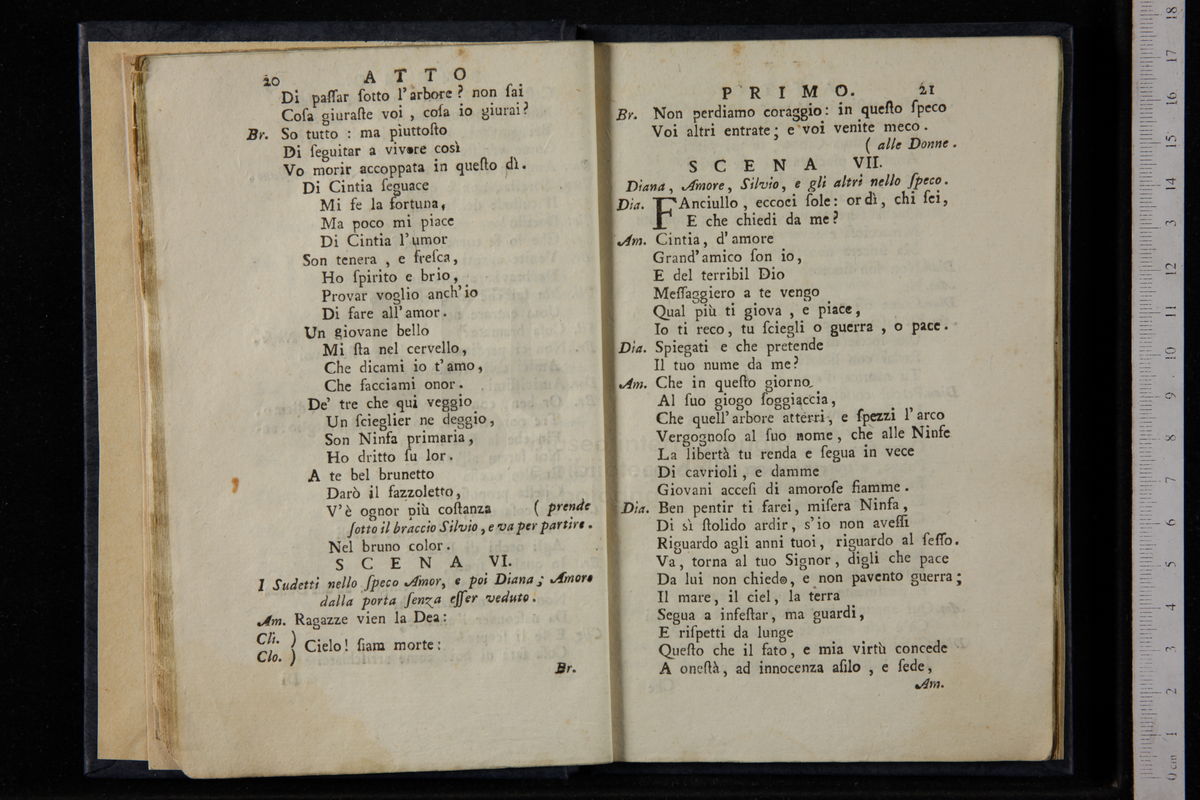 20 ATTO
Di paſſar ſotto l'arbore? non ſai
Coſa giuraſte voi, coſa io giurai?
Br. So tutto: ma piuttoſto
Di ſeguitar a vivere così
Vo morir accoppata in queſto dì.
Di Cintia ſeguace
Mi fe la fortuna,
Ma poco mi piace
Di Cintia l'umor
Son tenera, e freſca,
Ho ſpirito e brio,
Provar voglio anch'io
Di fare all'amor.
Un giovane bello
Mi ſta nel cervello,
Che dicami io t'amo,
Che facciami onor.
De' tre che qui veggio
Un ſcieglier ne deggio,
Son Ninfa primaria,
Ho dritto ſu lor.
A te bel brunetto
Darò il fazzoletto,
V'è ognor più coſtanza ( prende
ſotto il braccio Silvio, e va per partire.
Nel bruno color.
SCENA VI.
I Sudetti nello ſpeco Amor, e poi Diana; Amore
dalla porta ſenza eſſer veduto.
Am. Ragazze vien la Dea:
Cli. )
Clo. ) Cielo! ſiam morte:
Br.
PRIMO. 21
Br. Non perdiamo coraggio: in queſto ſpeco
Voi altri entrate; e voi venite meco.
( alle Donne.
SCENA VII.
Diana, Amore, Silvio, e gli altri nello ſpeco.
Dia. FAnciullo, eccoci ſole: or dì, chi ſei,
E che chiedi da me?
Am. Cintia, d'amore
Grand'amico ſon io,
E del terribil Dio
Meſſaggiero a te vengo
Qual più ti giova, e piace,
Io ti reco, tu ſciegli o guerra, o pace.
Dia. Spiegati e che pretende
Il tuo nume da me?
Am. Che in queſto giorno
Al ſuo giogo ſoggiaccia,
Che quell'arbore atterri, e ſpezzi l'arco
Vergognoſo al ſuo nome, che alle Ninfe
La libertà tu renda e ſegua in vece
Di cavrioli, e damme
Giovani acceſi di amoroſe fiamme.
Dia. Ben pentir ti farei, miſera Ninfa,
Di sì ſtolido ardir, s'io non aveſſi
Riguardo agli anni tuoi, riguardo al ſeſſo.
Va, torna al tuo Signor, digli che pace
Da lui non chiedo, e non pavento guerra;
Il mare, il ciel, la terra
Segua a infeſtar, ma guardi,
E riſpetti da lunge
Queſto che il fato, e mia virtù concede
A oneſtà, ad innocenza aſilo, e ſede,
Am.
0 cm 1 2 3 4 5 6 7 8 9 10 11 12 13 14 15 16 17 18